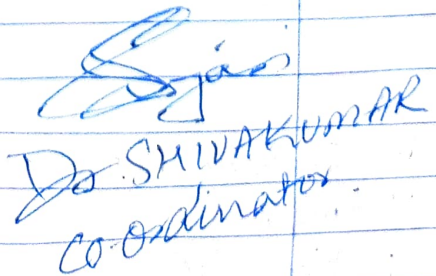 Dr. SHIVAKUMAR
co-ordinator